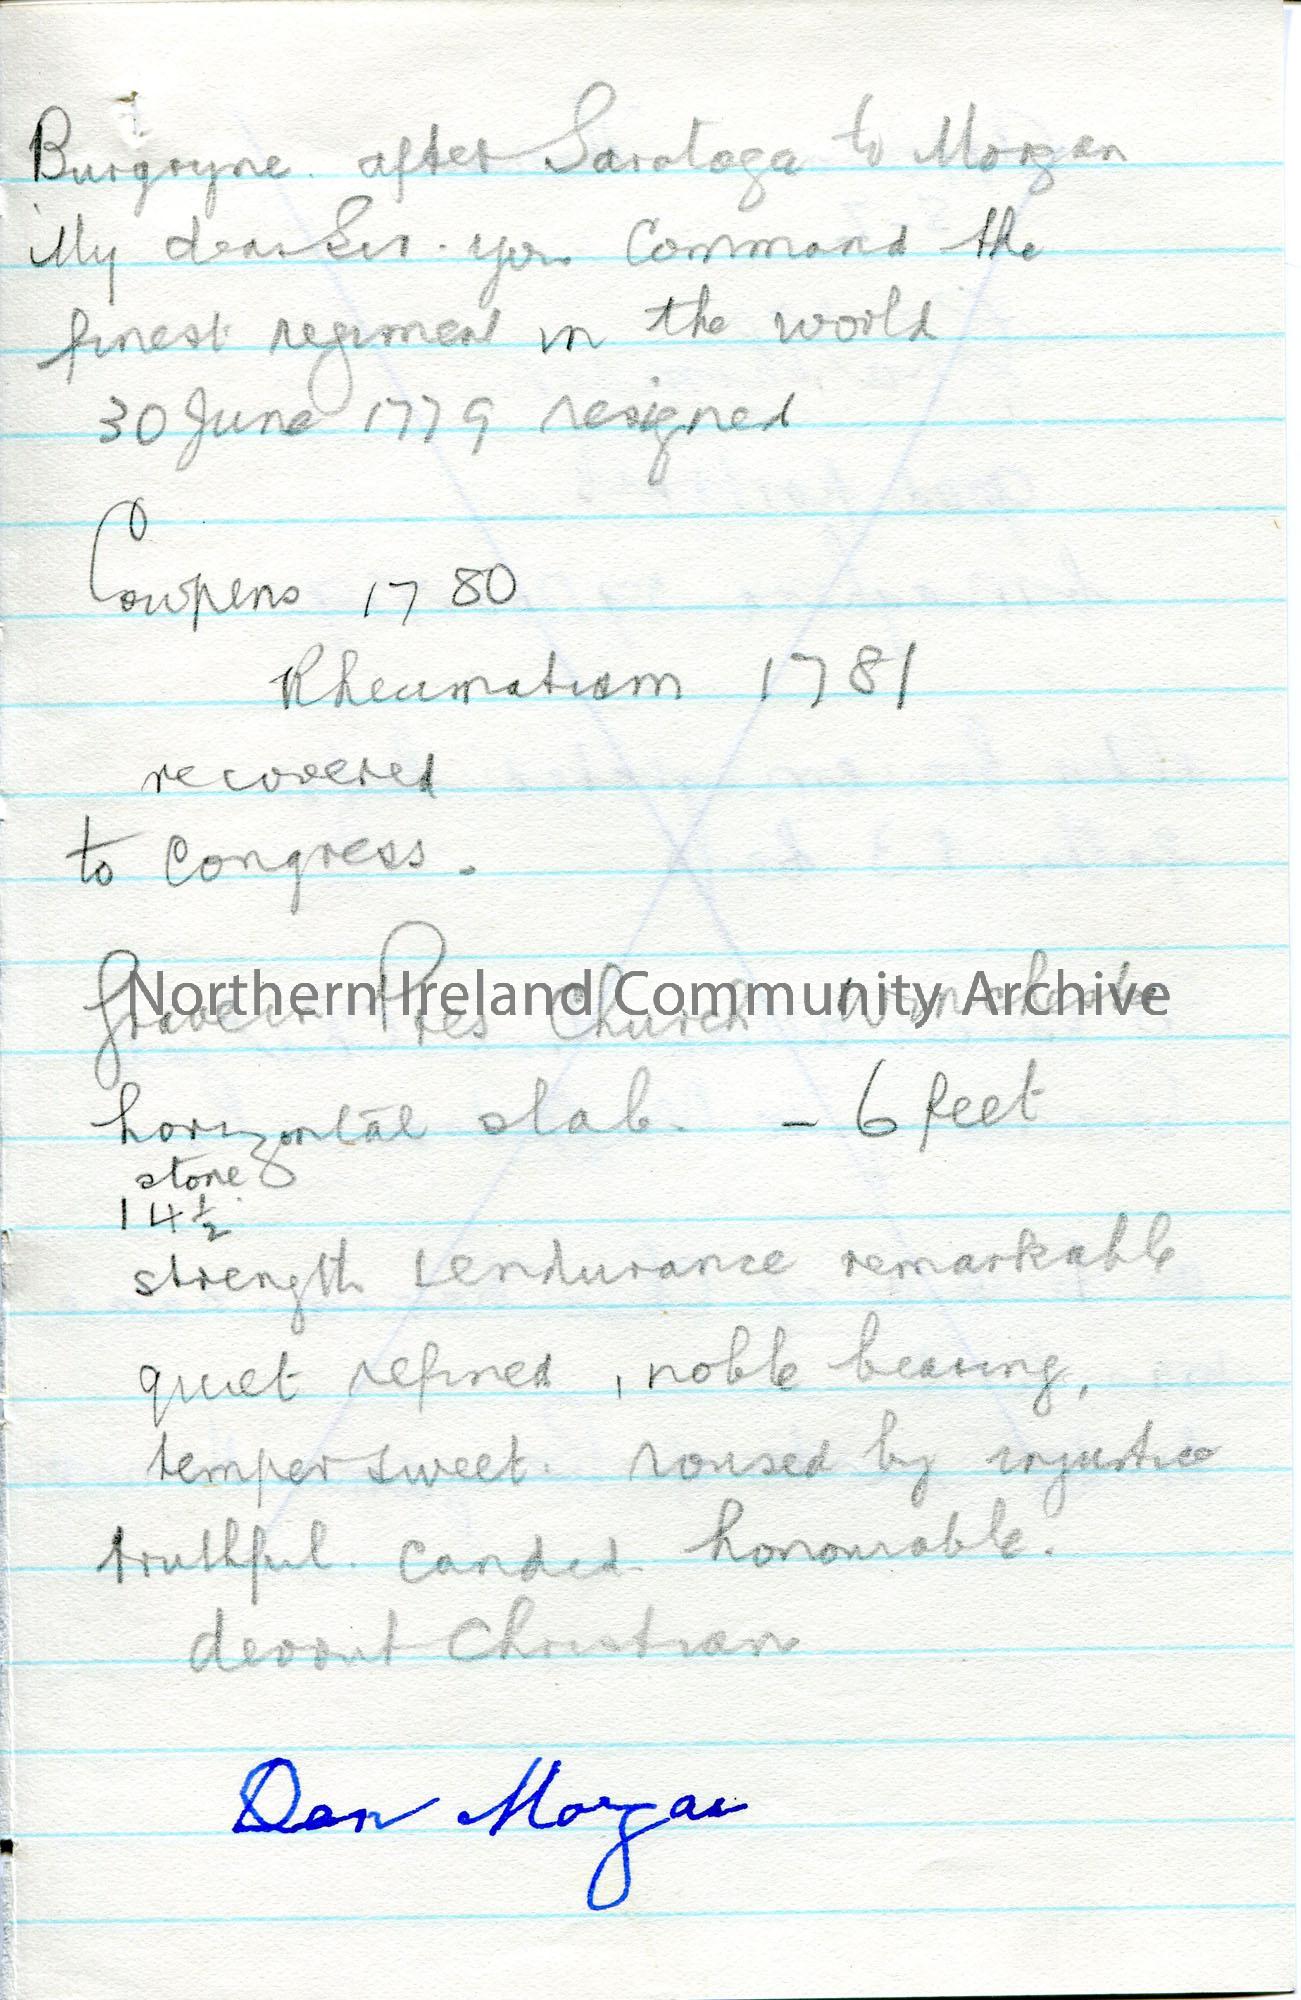 Burgoyne. after Saratoga to Morgan
My dear Sir. you Command the
finest regiment in the world
30 June 1779 resigned
Cowpens 1780
Rheumatism 1781
recovered
to Congress.
Grave in Pres Church Winchester
Northern Ireland Community Archive
horizontal slab. - 6 feet
stone
14½
strength & endurance remarkable
quiet refined, noble bearing,
temper sweet. roused by injustice
truthful. candid. honourable.
devout Christian
Dan Morgan